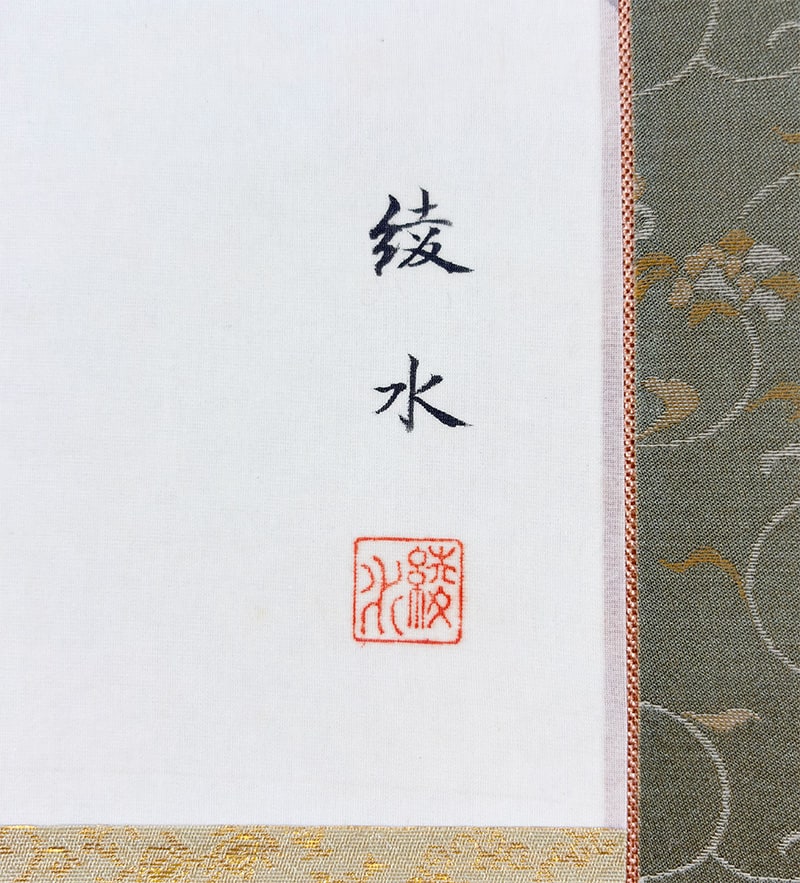 綾
水
綾水